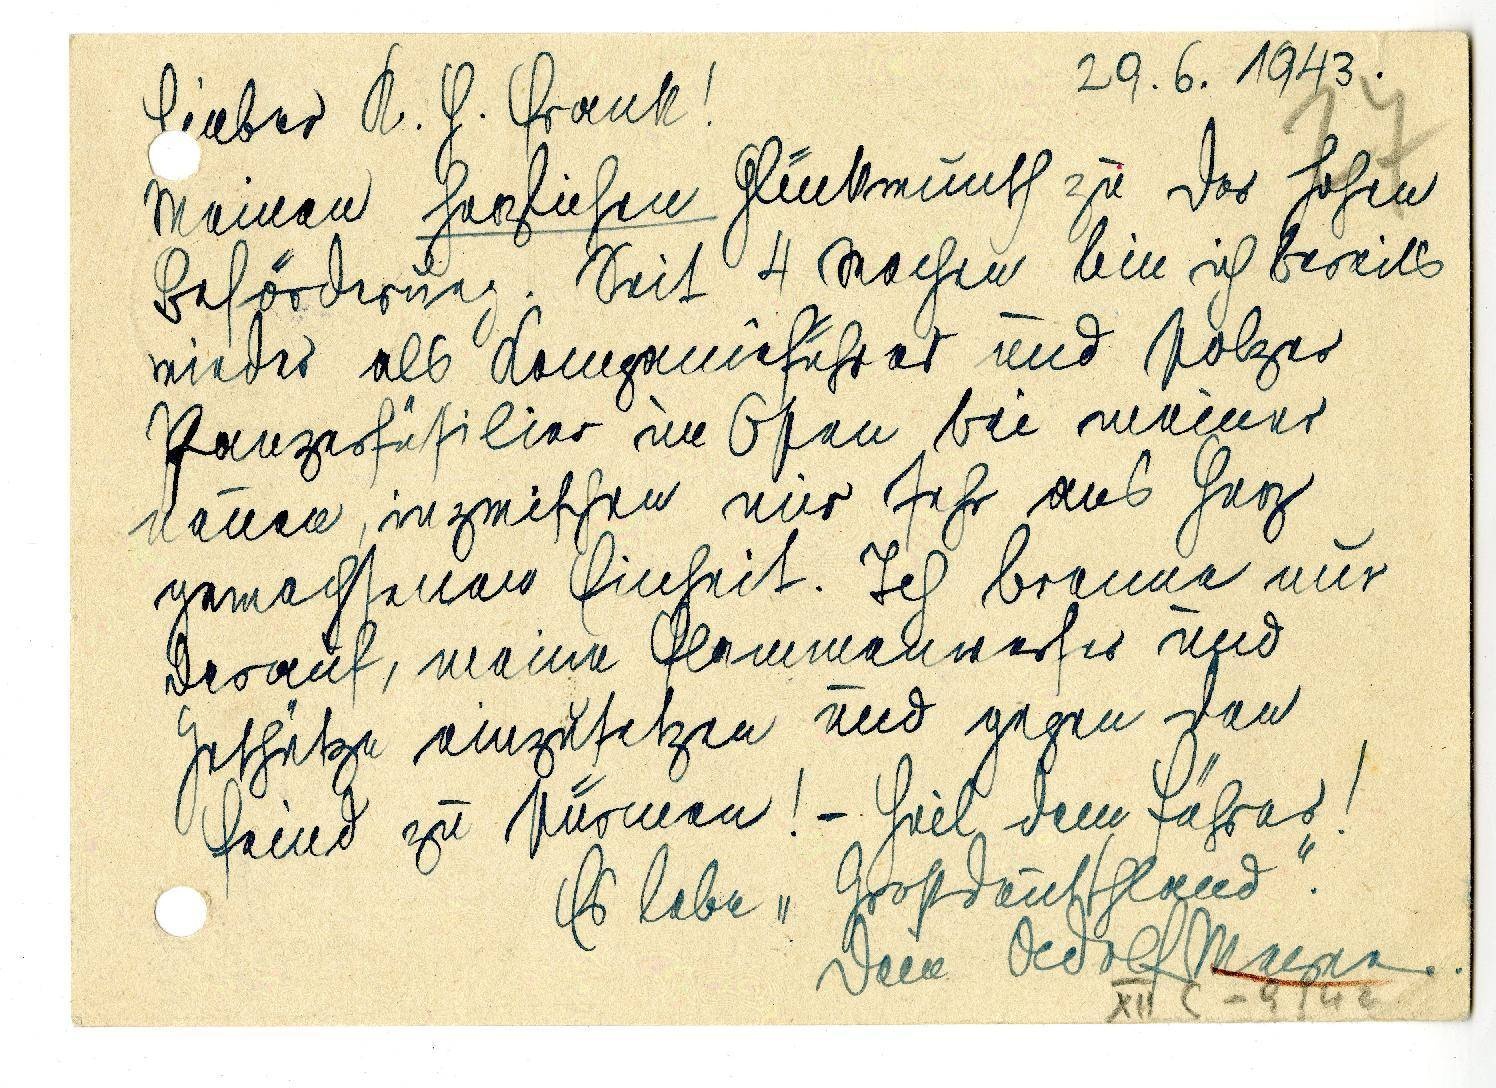 29.6.1943.
17
Lieber K. H. Frank!
Meinen herzlichen Glückwunsch zu der hohen
Beförderung. Seit 4 Wochen bin ich bereits
wieder als Kompanieführer und stolzer
Panzerfüsilier im Osten bei meiner
neuen, inzwischen mir sehr ans Herz
gewachsenen Einheit. Ich brenne nur
darauf, meine Flammenwerfer und
Geschütze einzusetzen und gegen den
Feind zu stürmen! – Heil dem Führer!
Es lebe „Großdeutschland".
Dein Adolf
XII C - 9/42